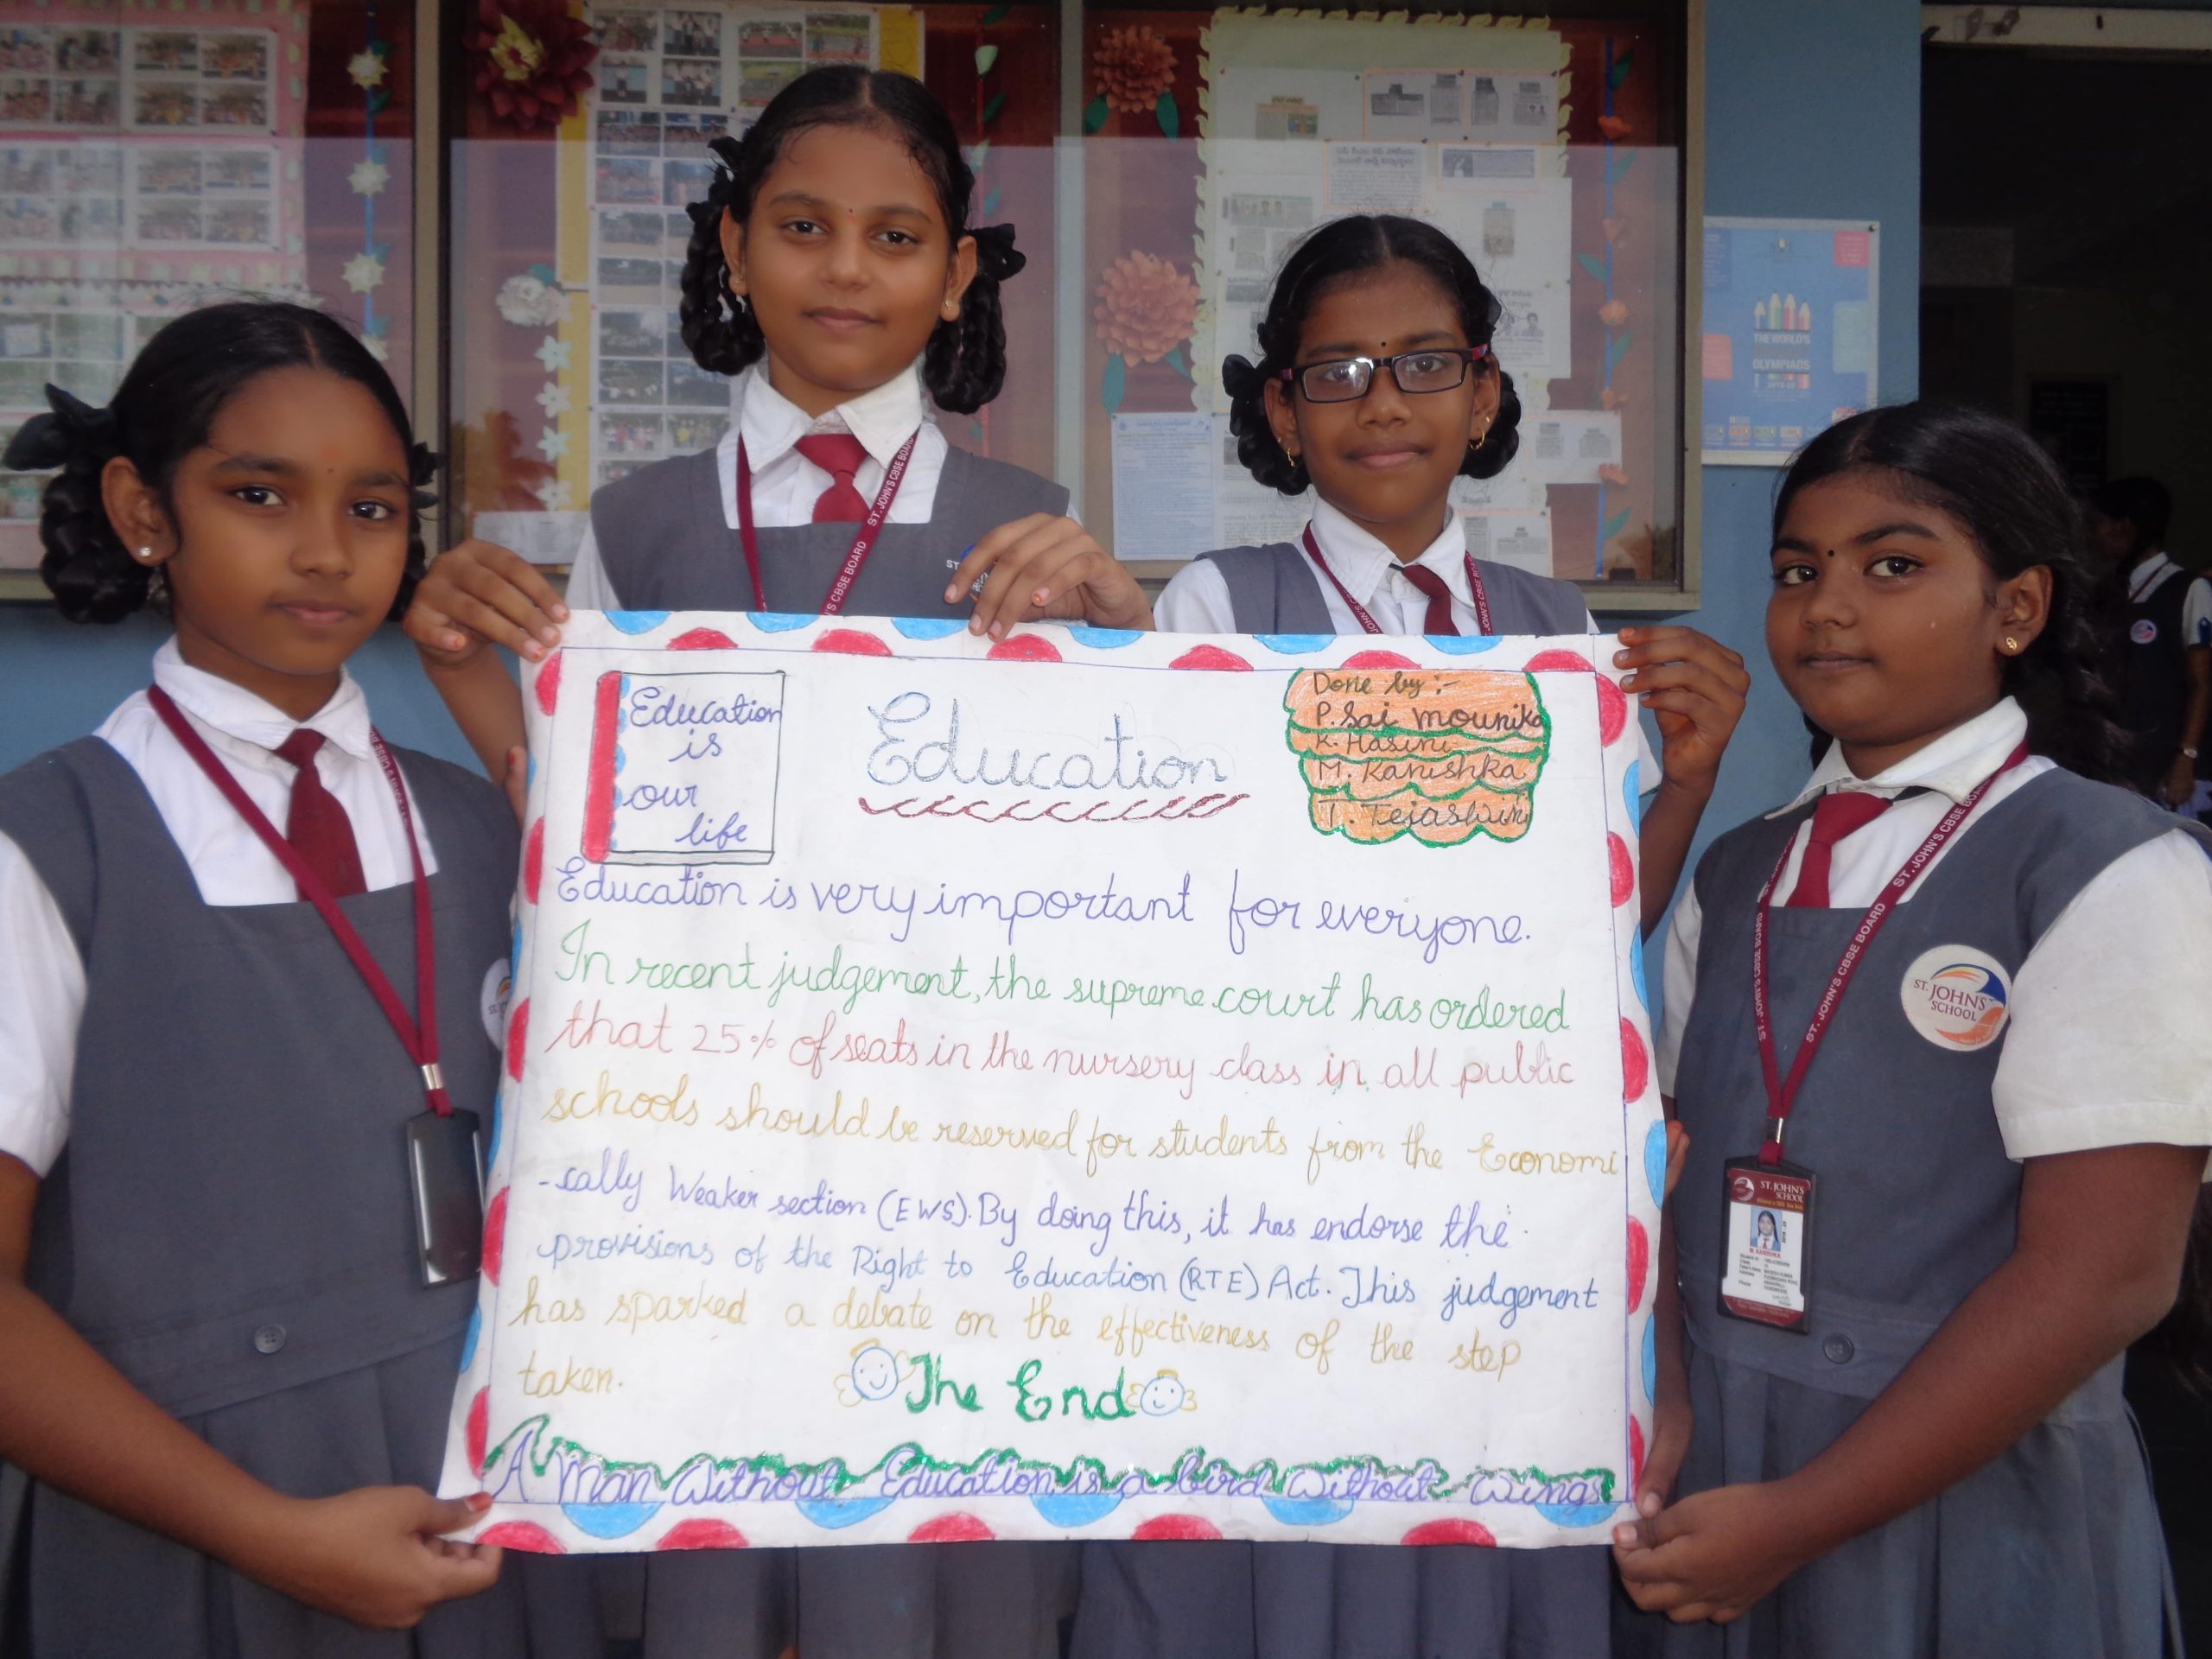 THE WORLD'S
OLYMPIADS
ST. JOHN'S CBSE BOARD
Education
is
our
life
Education
Done by :-
P. Sai mounika
K. Hasini
M. Kanishka
T. Tejashwini
Education is very important for everyone.
In recent judgement, the supreme court has ordered
that 25% of seats in the nursery class in all public
schools should be reserved for students from the Economi
-cally Weaker section (EWS). By doing this, it has endorse the
provisions of the Right to Education (RTE) Act. This judgement
has sparked a debate on the effectiveness of the step
taken.
The End
A Man Without Education is a bird without wings
ST. JOHN'S CBSE BOARD
ST. JOHN'S
SCHOOL
ST. JOHN'S
SCHOOL